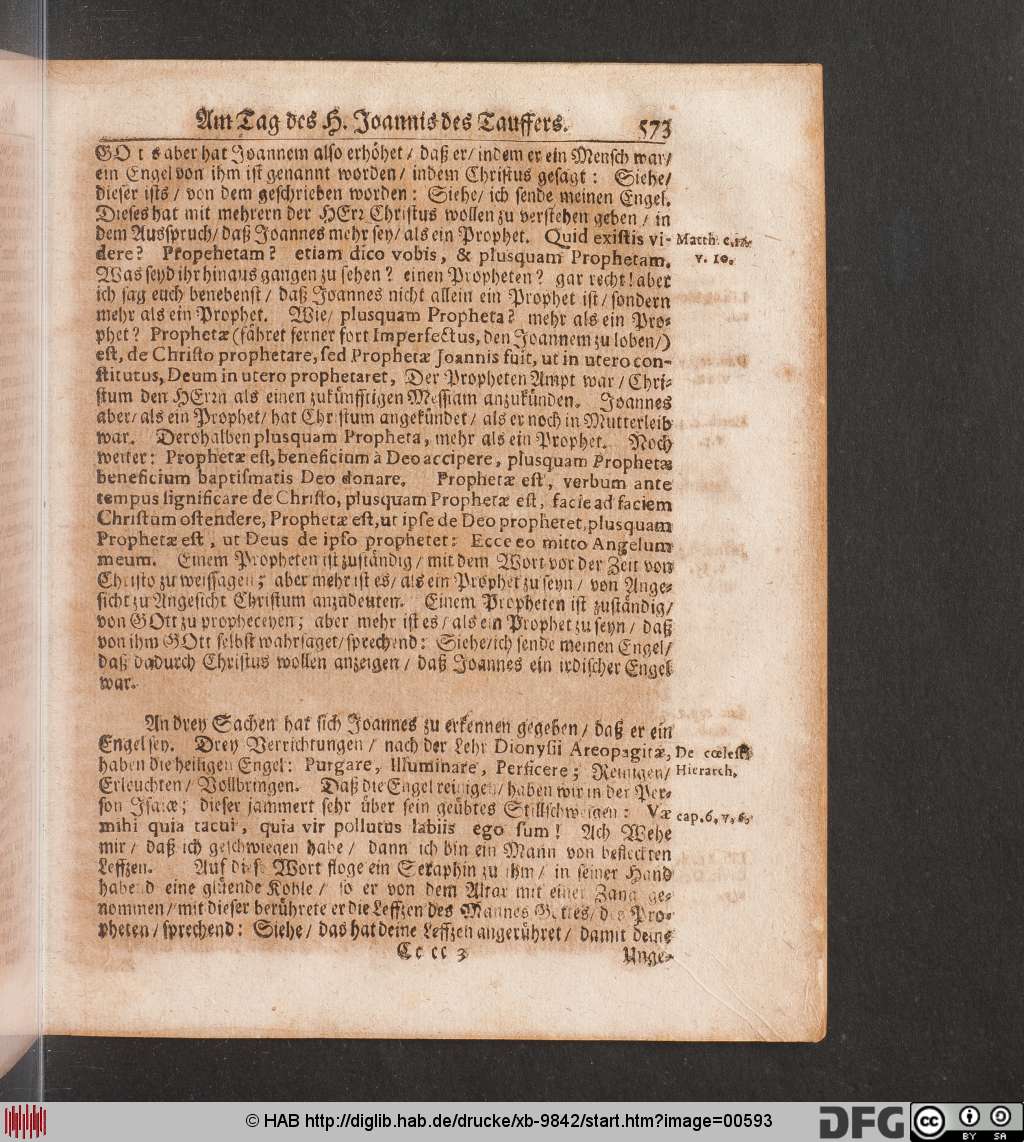 Am Tag des H. Joannis des Tauffers. 573
GOtt aber hat Joannem also erhöhet / daß er / indem er ein Mensch war /
ein Engel von ihm ist genannt worden / indem Christus gesagt : Siehe /
dieser ists / von dem geschrieben worden : Siehe / ich sende meinen Engel.
Dieses hat mit mehrern der HErr Christus wollen zu verstehen geben / in
dem Ausspruch / daß Joannes mehr sey / als ein Prophet. Quid existis vi-
Matth. c. 11.
dere? Propehetam? etiam dico vobis, & plusquam Prophetam.
v. 10.
Was seyd ihr hinaus gangen zu sehen? einen Propheten? gar recht! aber
ich sag euch benebenst / daß Joannes nicht allein ein Prophet ist / sondern
mehr als ein Prophet. Wie / plusquam Propheta? mehr als ein Pro-
phet? Prophetæ (fähret ferner fort Imperfectus, den Joannem zu loben /)
est, de Christo prophetare, sed Prophetæ Joannis fuit, ut in utero con-
stitutus, Deum in utero prophetaret, Der Propheten Ampt war / Chri-
stum den HErrn als einen zukünfftigen Messiam anzukünden. Joannes
aber / als ein Prophet / hat Christum angekündet / als er noch in Mutterleib
war. Derohalben plusquam Propheta, mehr als ein Prophet. Noch
weiter : Prophetæ est, beneficium à Deo accipere, plusquam Prophetæ
beneficium baptismatis Deo donare. Prophetæ est, verbum ante
tempus significare de Christo, plusquam Prophetæ est, facie ad faciem
Christum ostendere, Prophetæ est, ut ipse de Deo prophetet, plusquam
Prophetæ est, ut Deus de ipso prophetet : Ecce eo mitto Angelum
meum. Einem Propheten ist zuständig / mit dem Wort vor der Zeit von
Christo zu weissagen ; aber mehr ist es / als ein Prophet zu seyn / von Ange-
sicht zu Angesicht Christum anzudeuten. Einem Propheten ist zuständig /
von GOtt zu propheceyen ; aber mehr ist es / als ein Prophet zu seyn / daß
von ihm GOtt selbst wahrsaget / sprechend : Siehe / ich sende meinen Engel /
daß dadurch Christus wollen anzeigen / daß Joannes ein irdischer Engel
war.
An drey Sachen hat sich Joannes zu erkennen gegeben / daß er ein
Engel sey. Drey Verrichtungen / nach der Lehr Dionysii Areopagitæ,
De cœlest.
haben die heiligen Engel : Purgare, Illuminare, Perficere ; Reinigen /
Hierarch.
Erleuchten / Vollbringen. Daß die Engel reinigen / haben wir in der Per-
son Isaiæ ; dieser jammert sehr über sein geübtes Stillschweigen : Væ
cap. 6. v. 6.
mihi quia tacui, quia vir pollutus labiis ego sum! Ach Wehe
mir / daß ich geschwiegen habe / dann ich bin ein Mann von befleckten
Leffzen. Auf diese Wort floge ein Seraphin zu ihm / in seiner Hand
habend eine glüende Kohle / so er von dem Altar mit einer Zang ge-
nommen / mit dieser berührete er die Leffzen des Mannes Gottes / des Pro-
pheten / sprechend : Siehe / das hat deine Leffzen angerühret / damit deine
Cc cc 3 Unge-
© HAB http://diglib.hab.de/drucke/xb-9842/start.htm?image=00593
DFG
cc BY SA